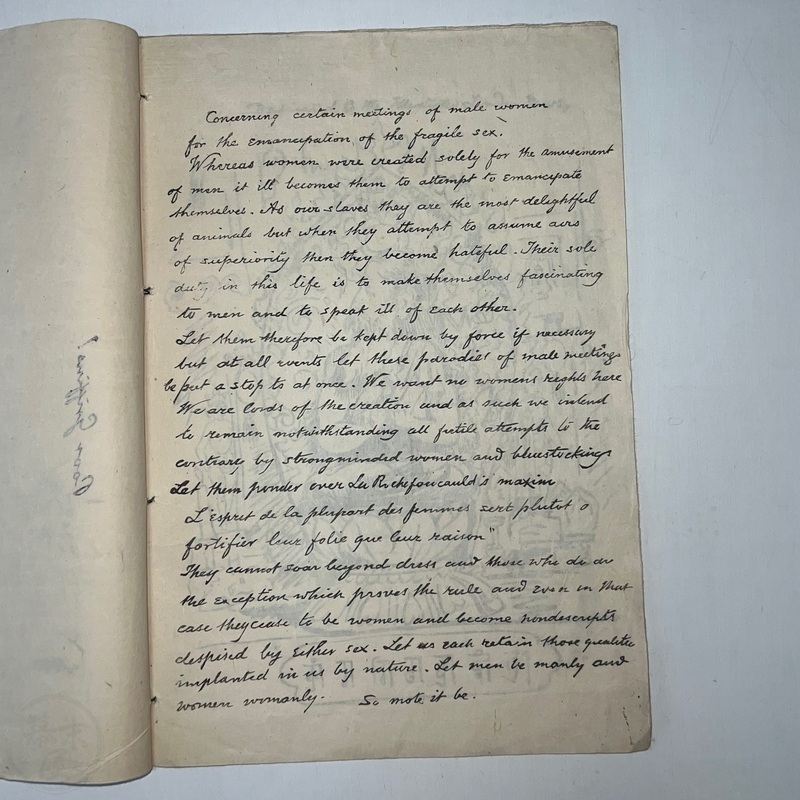 Concerning certain meetings of male women
for the emancipation of the fragile sex.
Whereas women were created solely for the amusement
of men it ill becomes them to attempt to emancipate
themselves. As our slaves they are the most delightful
of animals but when they attempt to assume airs
of superiority then they become hateful. Their sole
duty in this life is to make themselves fascinating
to men and to speak ill of each other.
Let them therefore be kept down by force if necessary
but at all events let these parodies of male meetings
be put a stop to at once. We want no womens rights here
We are lords of the creation and as such we intend
to remain notwithstanding all futile attempts to the
contrary by strongminded women and bluestockings
Let them ponder over La Rochefoucauld's maxim
L'Esprit de la plupart des femmes sert plutot a
fortifier leur folie que leur raison"
They cannot soar beyond dress and those who do are
the exception which proves the rule and even in that
case they cease to be women and become nondescripts
despised by either sex. Let us each retain those qualities
implanted in us by nature. Let men be manly and
women womanly. So mote it be.